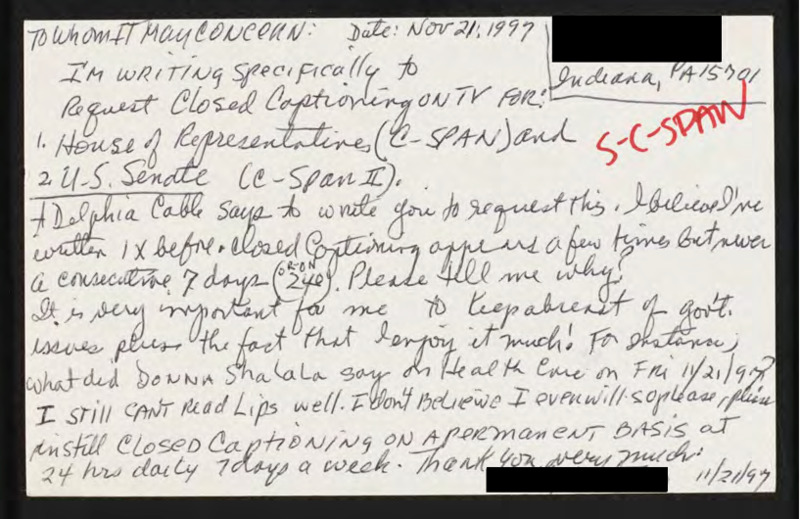 TO WHOM IT MAY CONCERN: Date: Nov 21, 1997
Indiana, PA 15701
I'M WRITING Specifically to
Request Closed Captioning ON TV FOR:
S-C-SPAN
1. House of Representatives (C-SPAN) and
2. U.S. Senate (C-Span II).
Adelphia Cable says to write you to request this. I believe I've
written 1X before. Closed Captioning appears a few times but never
a consecutive 7 days (OR ON 24). Please tell me why?
It is very important for me to keep abreast of gov't.
issues plus the fact that I enjoy it much! For instance,
what did DONNA Shalala say on Health Care on Fri 11/21/97?
I STILL CANT Read Lips well. I don't Believe I ever will so please, please
instill CLOSED CAPTIONING ON A PERMANENT BASIS at
24 hrs daily 7 days a week. Thank You very much!
11/21/97